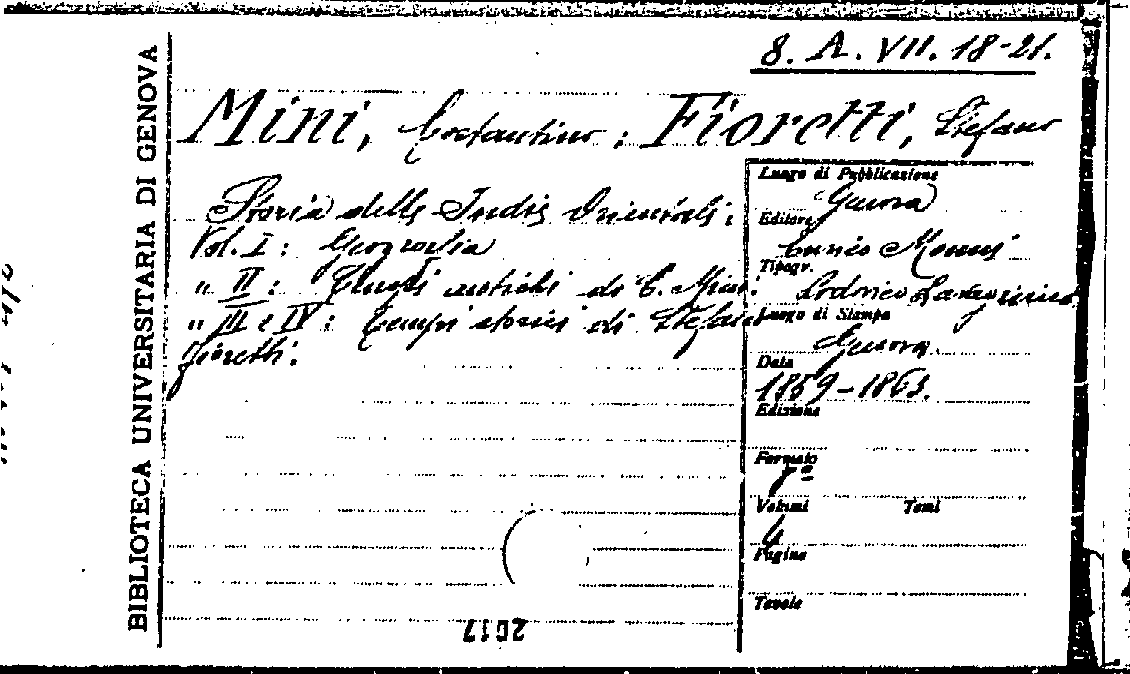 8. A. VII. 18-21.
BIBLIOTECA UNIVERSITARIA DI GENOVA
Mini, Costantino; Fioretti, Stefano
Storia delle Indie Orientali.
Vol. I: Geografia
" II: Tempi antichi di C. Mini.
" III e IV: Tempi storici di Stefano
Fioretti.
Luogo di Pubblicazione
Genova
Editore
Enrico Monni
Tipogr.
Lodovico
Luogo di Stampa
Genova
Data
1859-1863.
Edizione
Formato
Volumi Tomi
4
Pagine
Tavole
2017